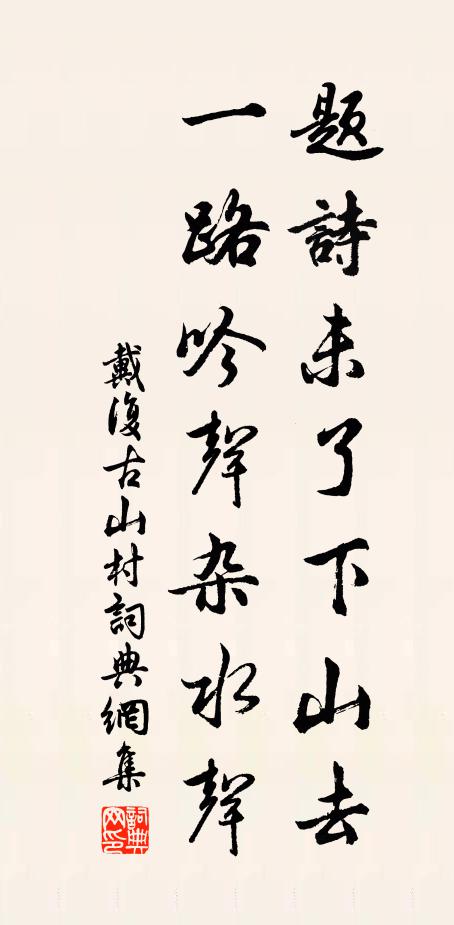 题詩未了下山去
一路吟聲杂水聲
戴復古山村詞典網集
詞典网印